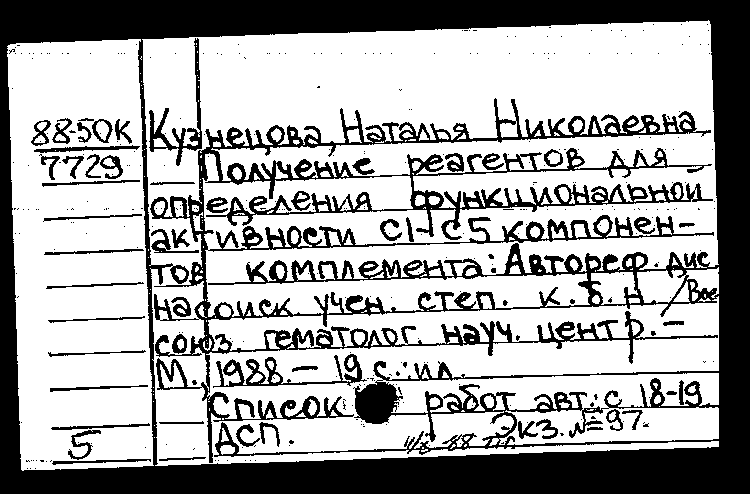 88-50К Кузнецова, Наталья Николаевна.
7729 Получение реагентов для
определения функциональной
активности С1-С5 компонен-
тов комплемента: Автореф. дис.
на соиск. учен. степ. к.б.н. / Все
союз. гематолог. науч. центр. –
М., 1988. – 19 с.: ил.
Список работ авт.: с 18-19.
ДСП. Экз. № 97.
5